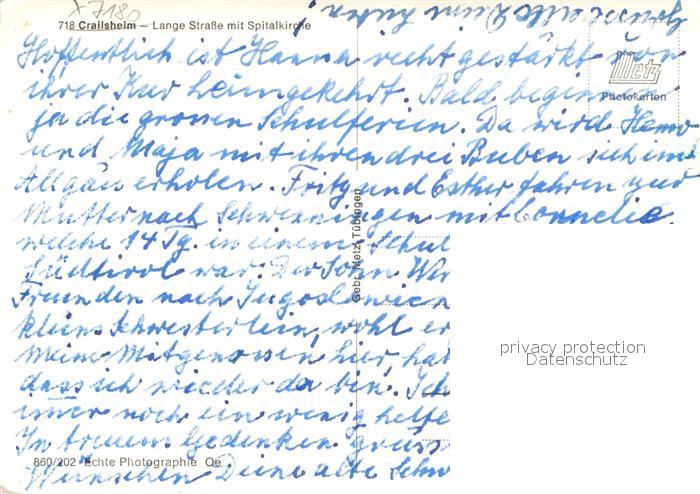 X 7180
718 Crailsheim – Lange Straße mit Spitalkirche
Hoffentlich ist Hanna recht gestärkt von
ihrer Kur heimgekehrt. Bald beginnen
ja die grossen Schulferien. Da wird Hanno
und Maja mit ihren drei Buben sich im
Allgäu erholen. Fritz und Esther fahren zur
Mutter nach Schwenningen mit Cornelie
welche 14 Tg. in einem Schul
Südtirol war. Der Sohn
Freunden nach Jugoslawien
klein Schwesterlein, wohl er
Meine Mitgenossen hier, hab
dass ich wieder da bin. Ich
imer noch ein wenig helfe
In treuem Gedenken grüss
Wünschen Deine alte Schw
Metz
Photokarten
Gebr. Metz, Tübingen
860/202 Echte Photographie Qe
privacy protection
Datenschutz